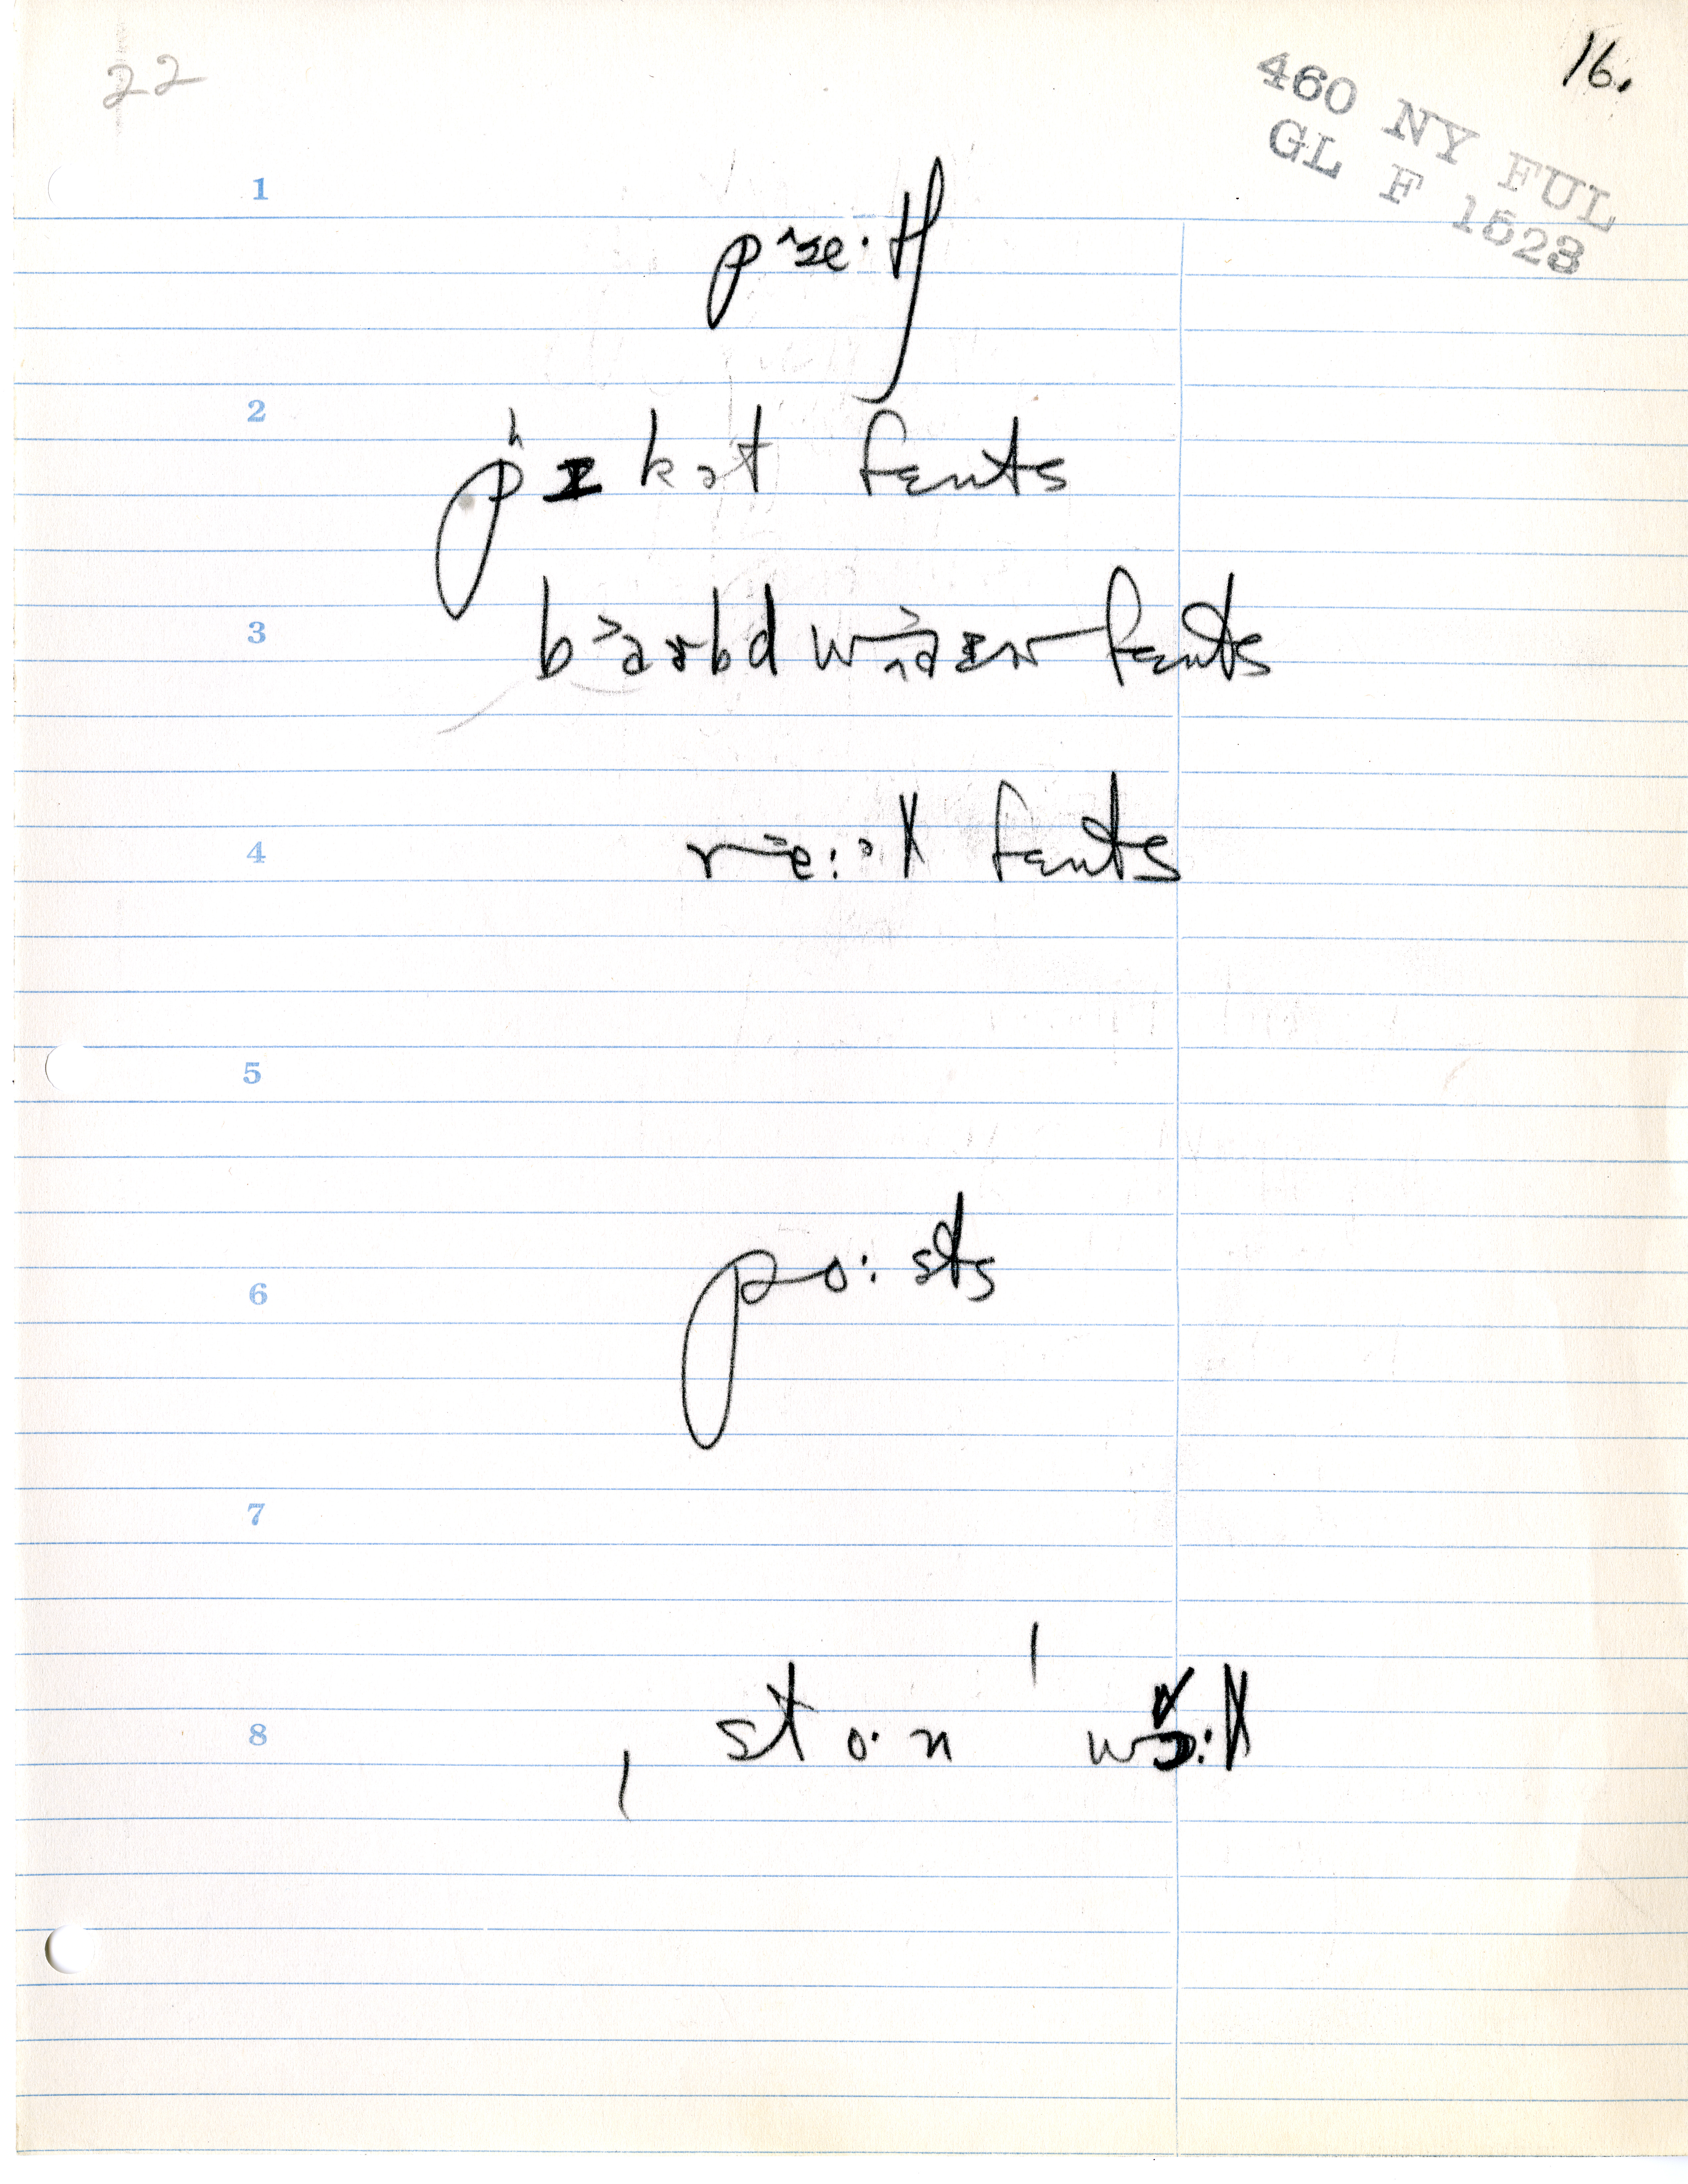 22
16.
460 NY FUL
GL F 1523
1
pæ^·tʃ
2
pʰɪkət fɛnts
3
b˃ɑɚbd wɑ˃ɪɚ fɛnts
4
re˃:əl fɛnts
5
6
po:sts
7
8
ˌsto·n ˈwɔ˅:l